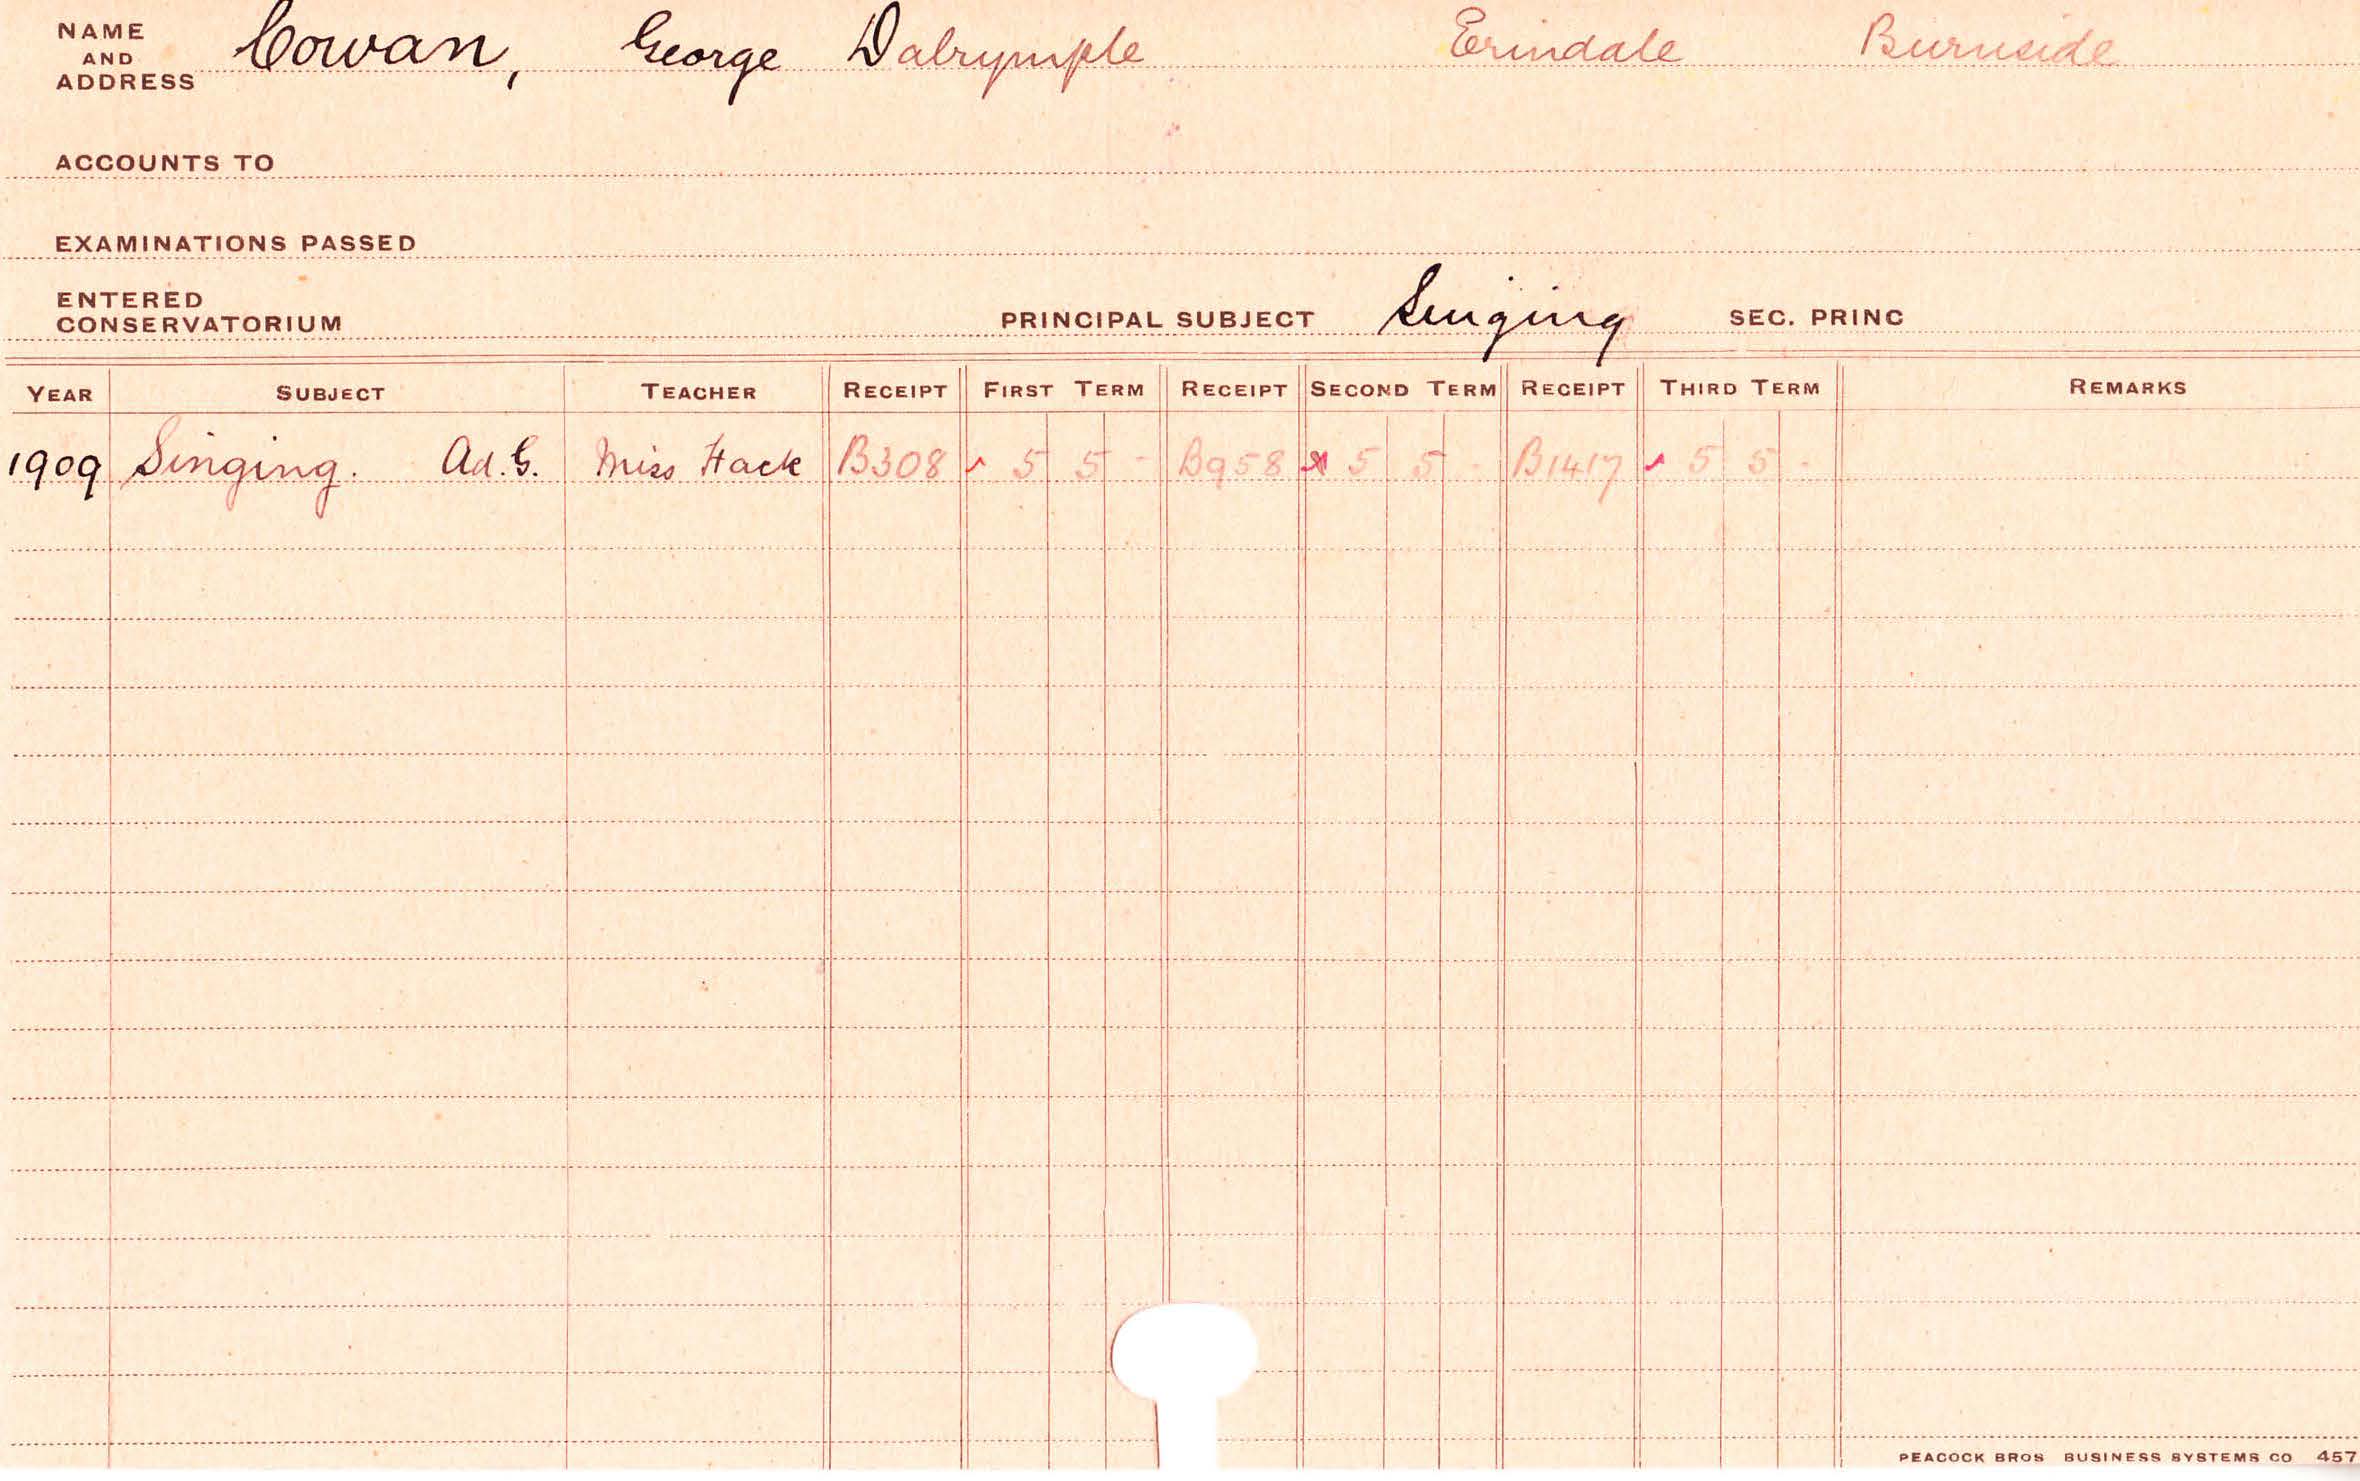 NAME AND ADDRESS Cowan, George Dalrymple Erindale Burnside
ACCOUNTS TO
EXAMINATIONS PASSED
ENTERED CONSERVATORIUM PRINCIPAL SUBJECT Singing SEC. PRINC
YEAR SUBJECT TEACHER RECEIPT FIRST TERM RECEIPT SECOND TERM RECEIPT THIRD TERM REMARKS
1909 Singing. Ad. G. Miss Hack B308 5 5 - B958 5 5 - B1417 5 5 -
PEACOCK BROS BUSINESS SYSTEMS CO 457